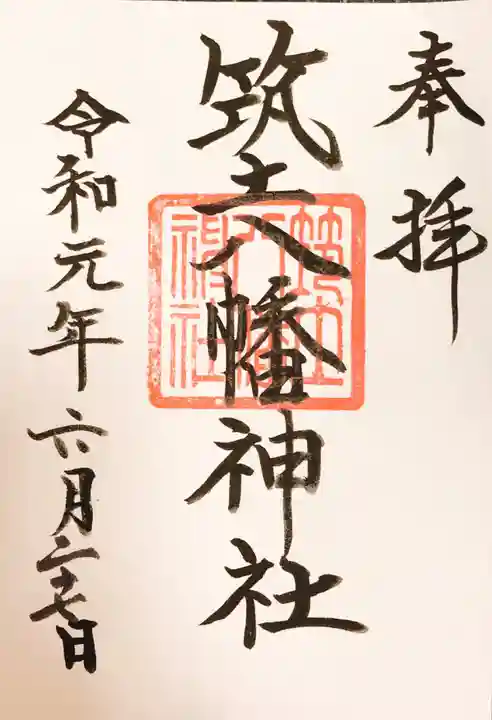 奉拝
筑土八幡神社
令和元年六月二十七日
筑土
八幡
神社